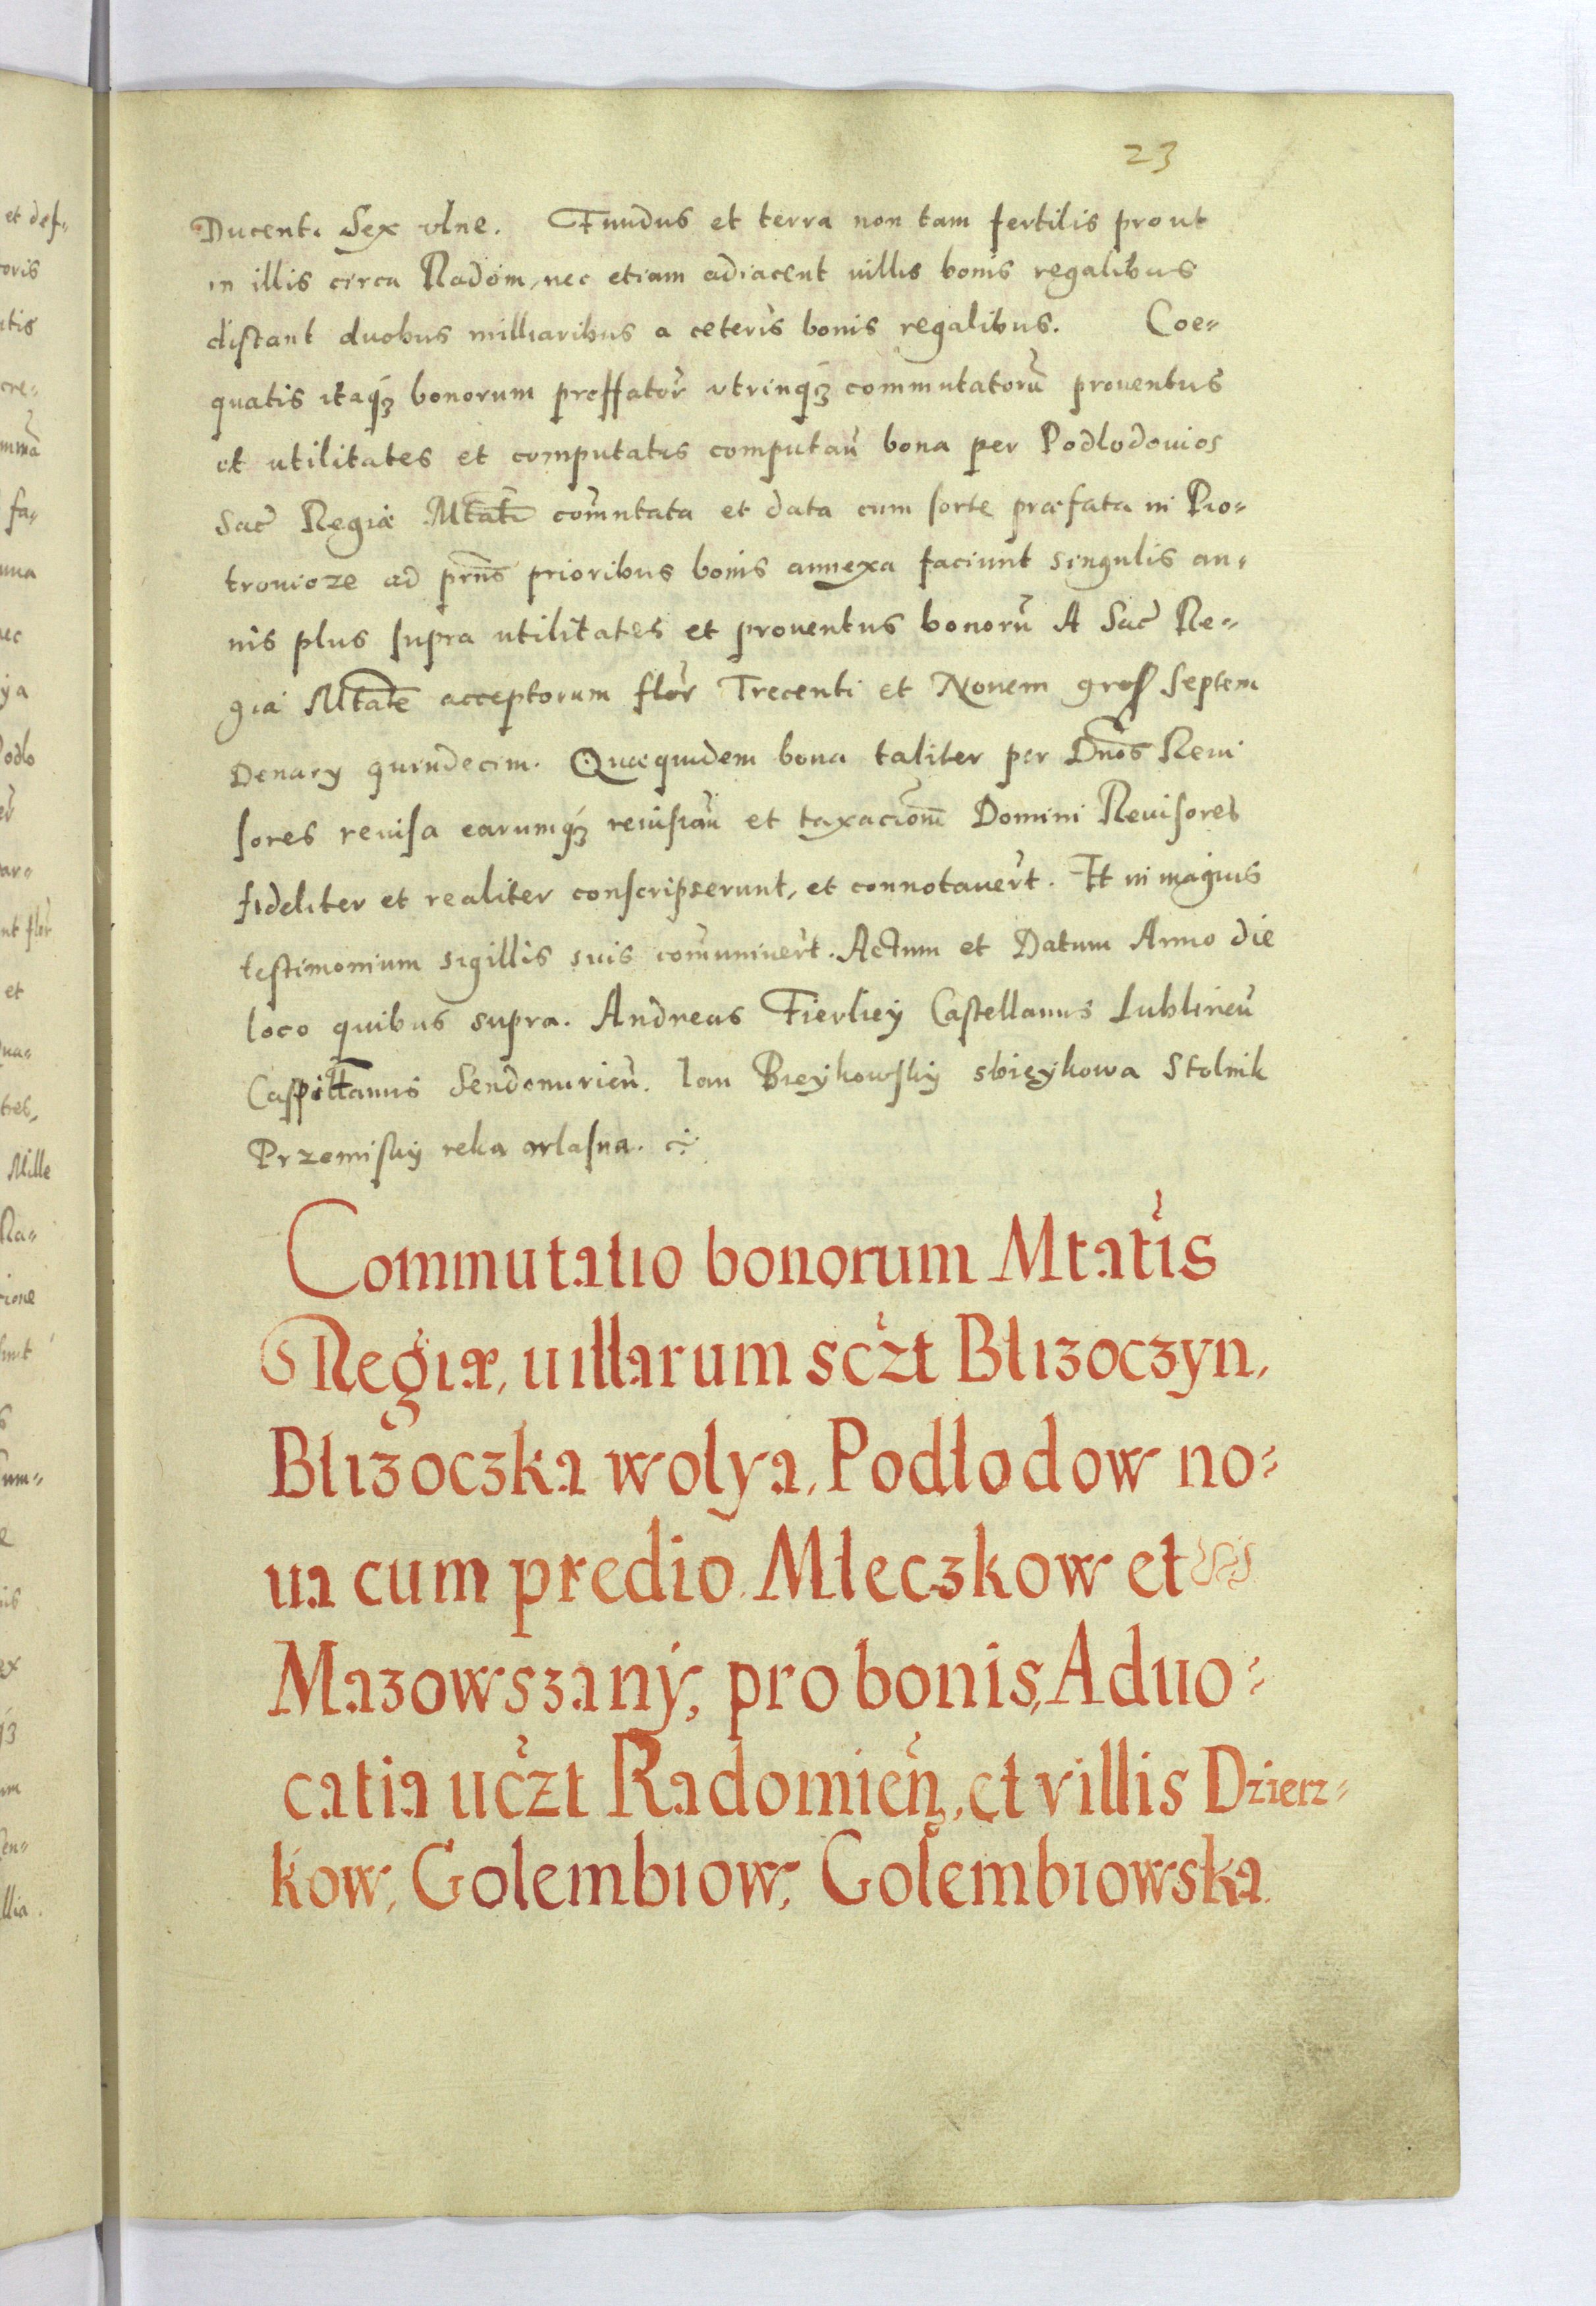 23
Ducenti Sex vlne. Fundus et terra non tam fertilis prout
in illis circa Radom, nec etiam adiacent villis bonis regalibus
distant duobus milliaribus a ceteris bonis regalibus. Coe-
quatis itaqȝ bonorum preffator vtrinqȝ commutatorũ prouentus
et utilitates et computatis computañ bona per Podlodouios
Sac̃ Regiæ Mtati com̃utata et data cum sorte præfata in Pio-
trouicze ad prñs prioribus bonis annexa faciunt singulis an-
nis plus supra utilitates et prouentus bonorũ A Sac̃ Re-
gia Mtate acceptorum flor Trecenti et Nouem gros Septem
Denary quindecim. Quæquidem bona taliter per Dños Reui
sores reuisa earumqȝ reuisiañ et taxacionẽ Domini Reuisores
fideliter et realiter conscripserunt, et connotauer̃t. Et in magius
testimonium sigillis suis com̃uniuer̃t. Actum et Datum Anno die
loco quibus supra. Andreas Fierliey Castellanus Lublineñ
Capittanus Sendomirieñ. Ian Bieykowsky sbieykowa Stolnik
Przemisky reka wlasna.
Commutatio bonorum Mtatis
Regiæ, uillarum scz̃t Błizoczyn,
Błizoczka wolya, Podłodow no-
ua cum predio. Młeczkow et
Mazowszaný, pro bonis, Aduo-
catia ucz̃t Radomieñ, et villis Dzierz-
kow, Golembiow, Golembiowska
et def-
oris
atis
cre-
mmã
fa-
nua
nec
ya
Podlo
ar-
nt flor
et
Qua-
tres,
Mille
Ra-
rione
um-
e
is
ex
qȝ
um
en-
llia.